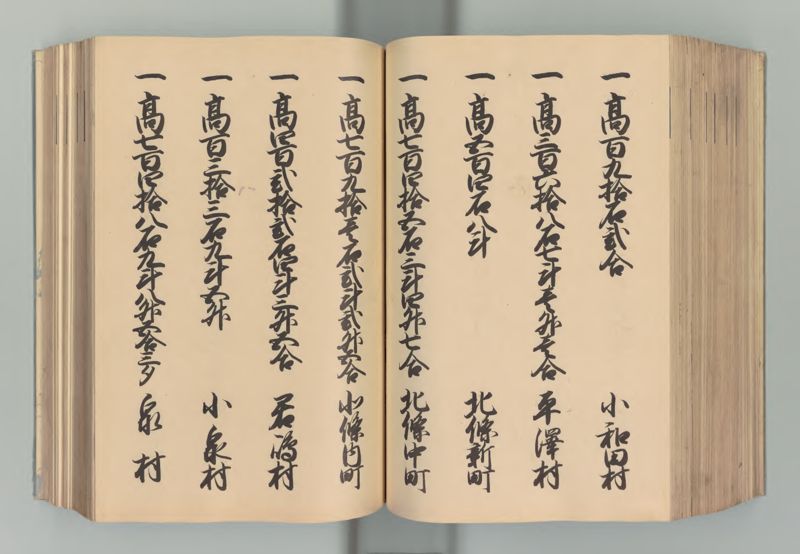 一 高百九拾石弐合 小和田村
一 高三百六拾八石七斗壱升壱合 平澤村
一 高五百四石八斗 北條新町
一 高七百四拾五石三斗四升七合 北條中町
一 高七百九拾壱石弐斗弐升六合 北條内町
一 高四百弐拾弐石四斗三升五合 君嶋村
一 高百三拾三石九斗五升 小泉村
一 高七百四拾八石九斗八升六合三夕 泉村